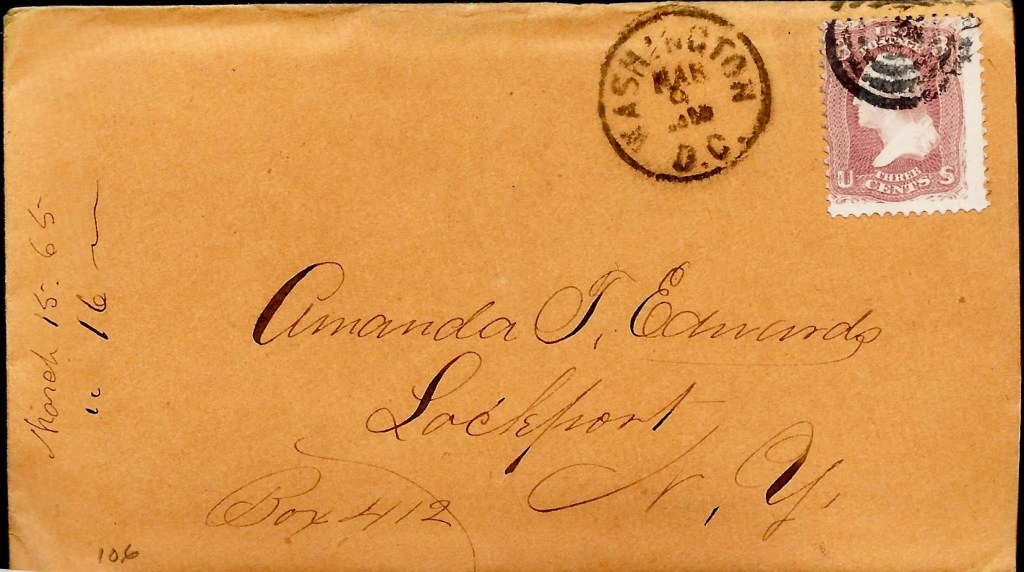 WASHINGTON
MAR
D.C.
U S
THREE
CENTS
March 15. 65
" 16 ~
Amanda T. Edwards
Lockport
N. Y.
Box 412
106